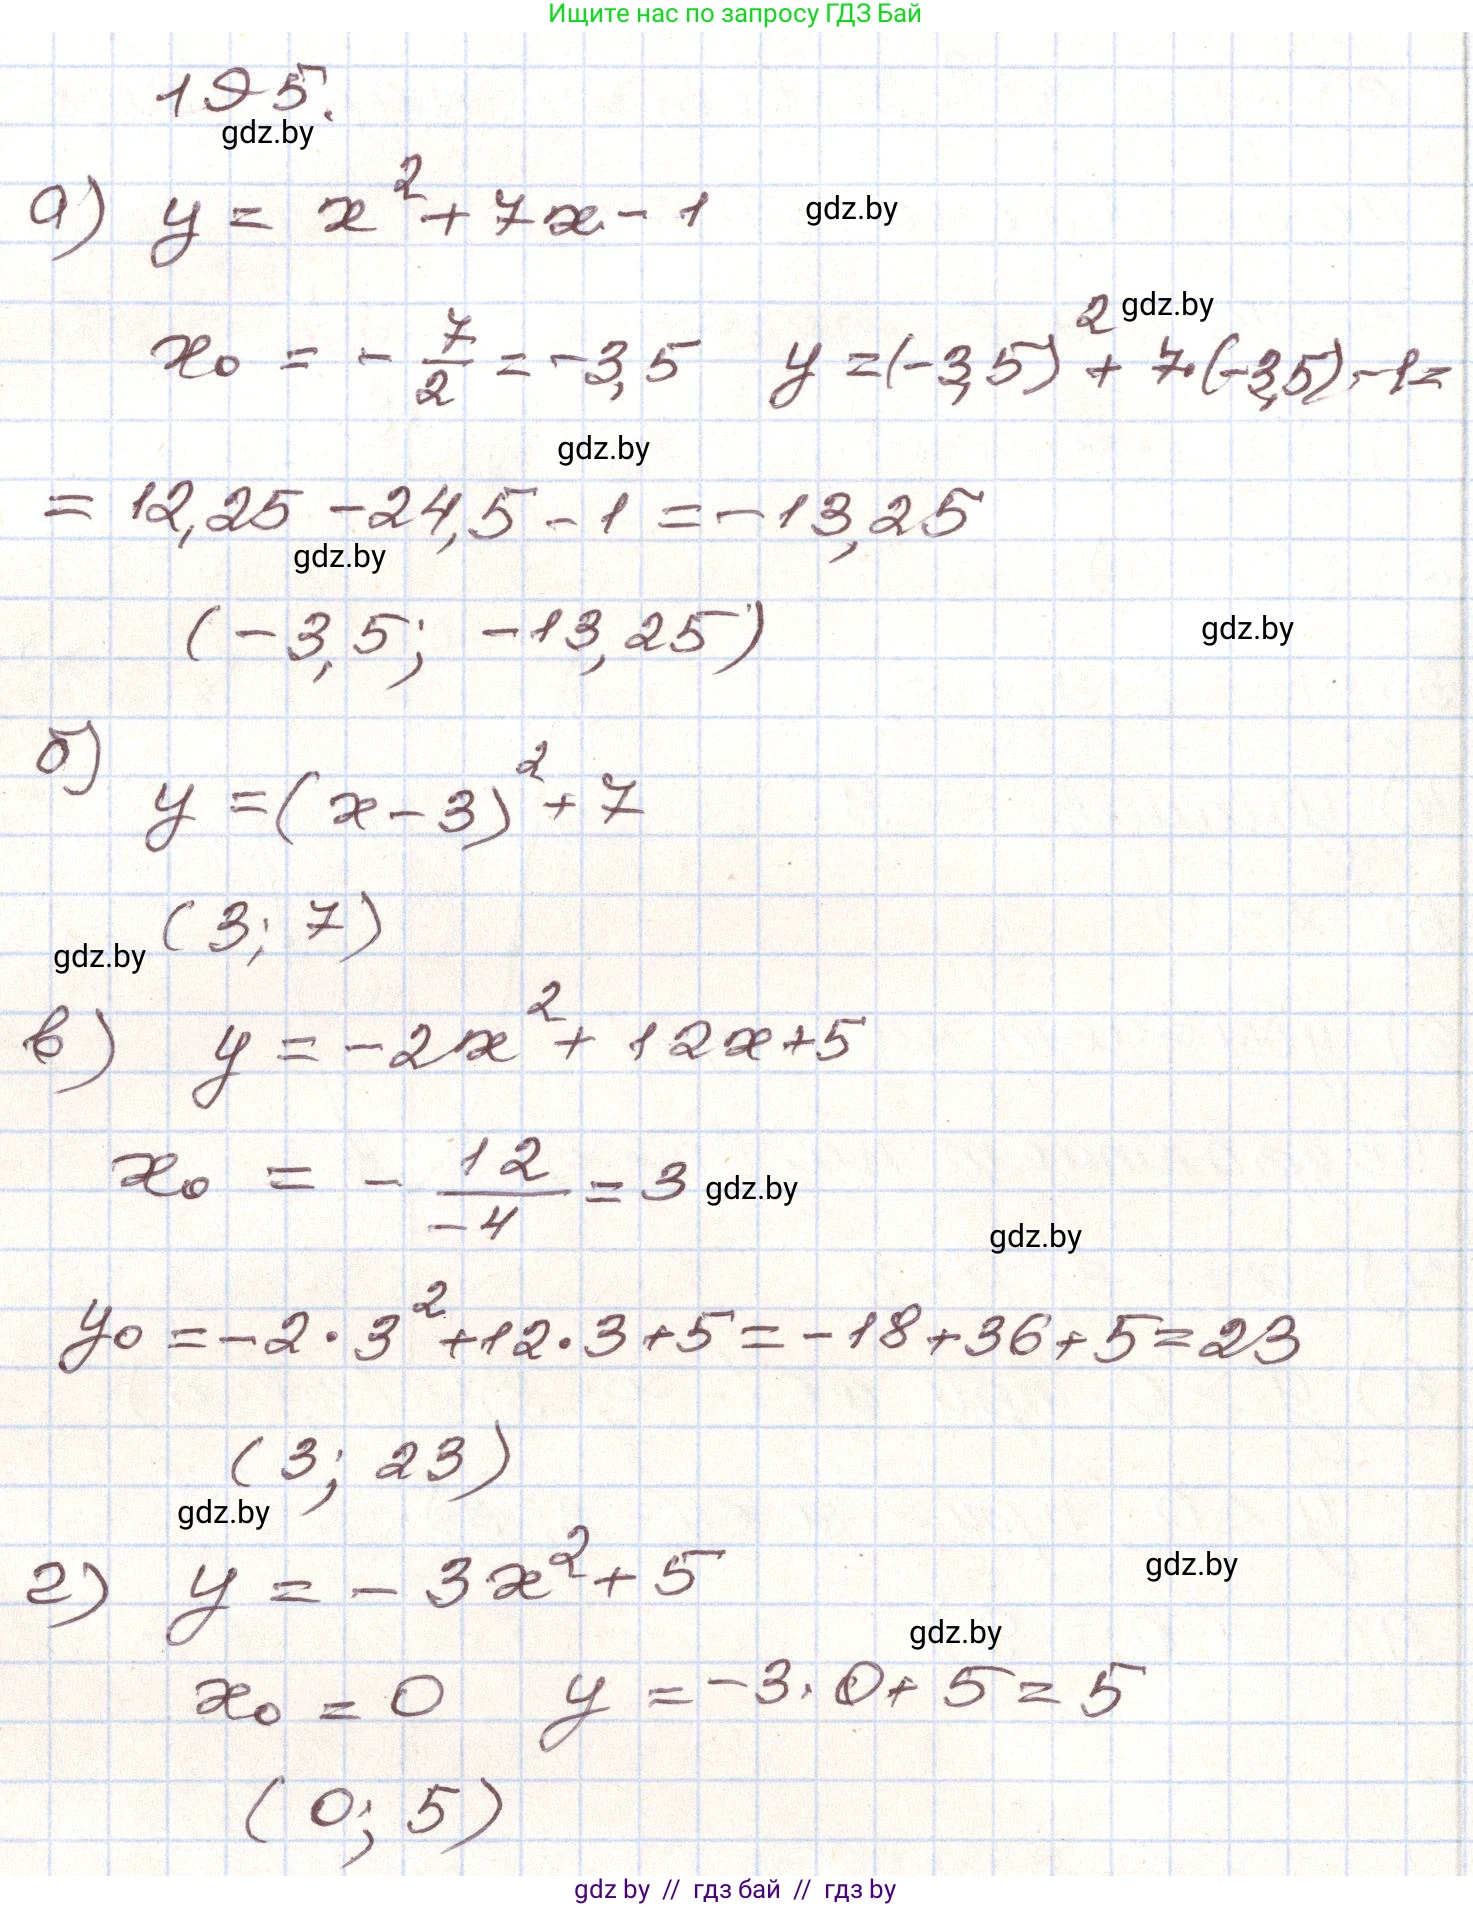 Ищите нас по запросу ГДЗ Бай
195.
gdz.by
а) y = x² + 7x - 1 gdz.by
gdz.by
x₀ = - 7/2 = -3,5 y = (-3,5)² + 7·(-3,5) - 1 =
gdz.by
= 12,25 - 24,5 - 1 = -13,25
gdz.by
(-3,5; -13,25) gdz.by
б) y = (x - 3)² + 7
(3; 7)
gdz.by
в) y = -2x² + 12x + 5
x₀ = - 12/-4 = 3 gdz.by
gdz.by
y₀ = -2 · 3² + 12 · 3 + 5 = -18 + 36 + 5 = 23
(3; 23)
gdz.by
г) y = -3x² + 5 gdz.by
gdz.by
x₀ = 0 y = -3 · 0 + 5 = 5
(0; 5)
gdz by // гдз бай // гдз by